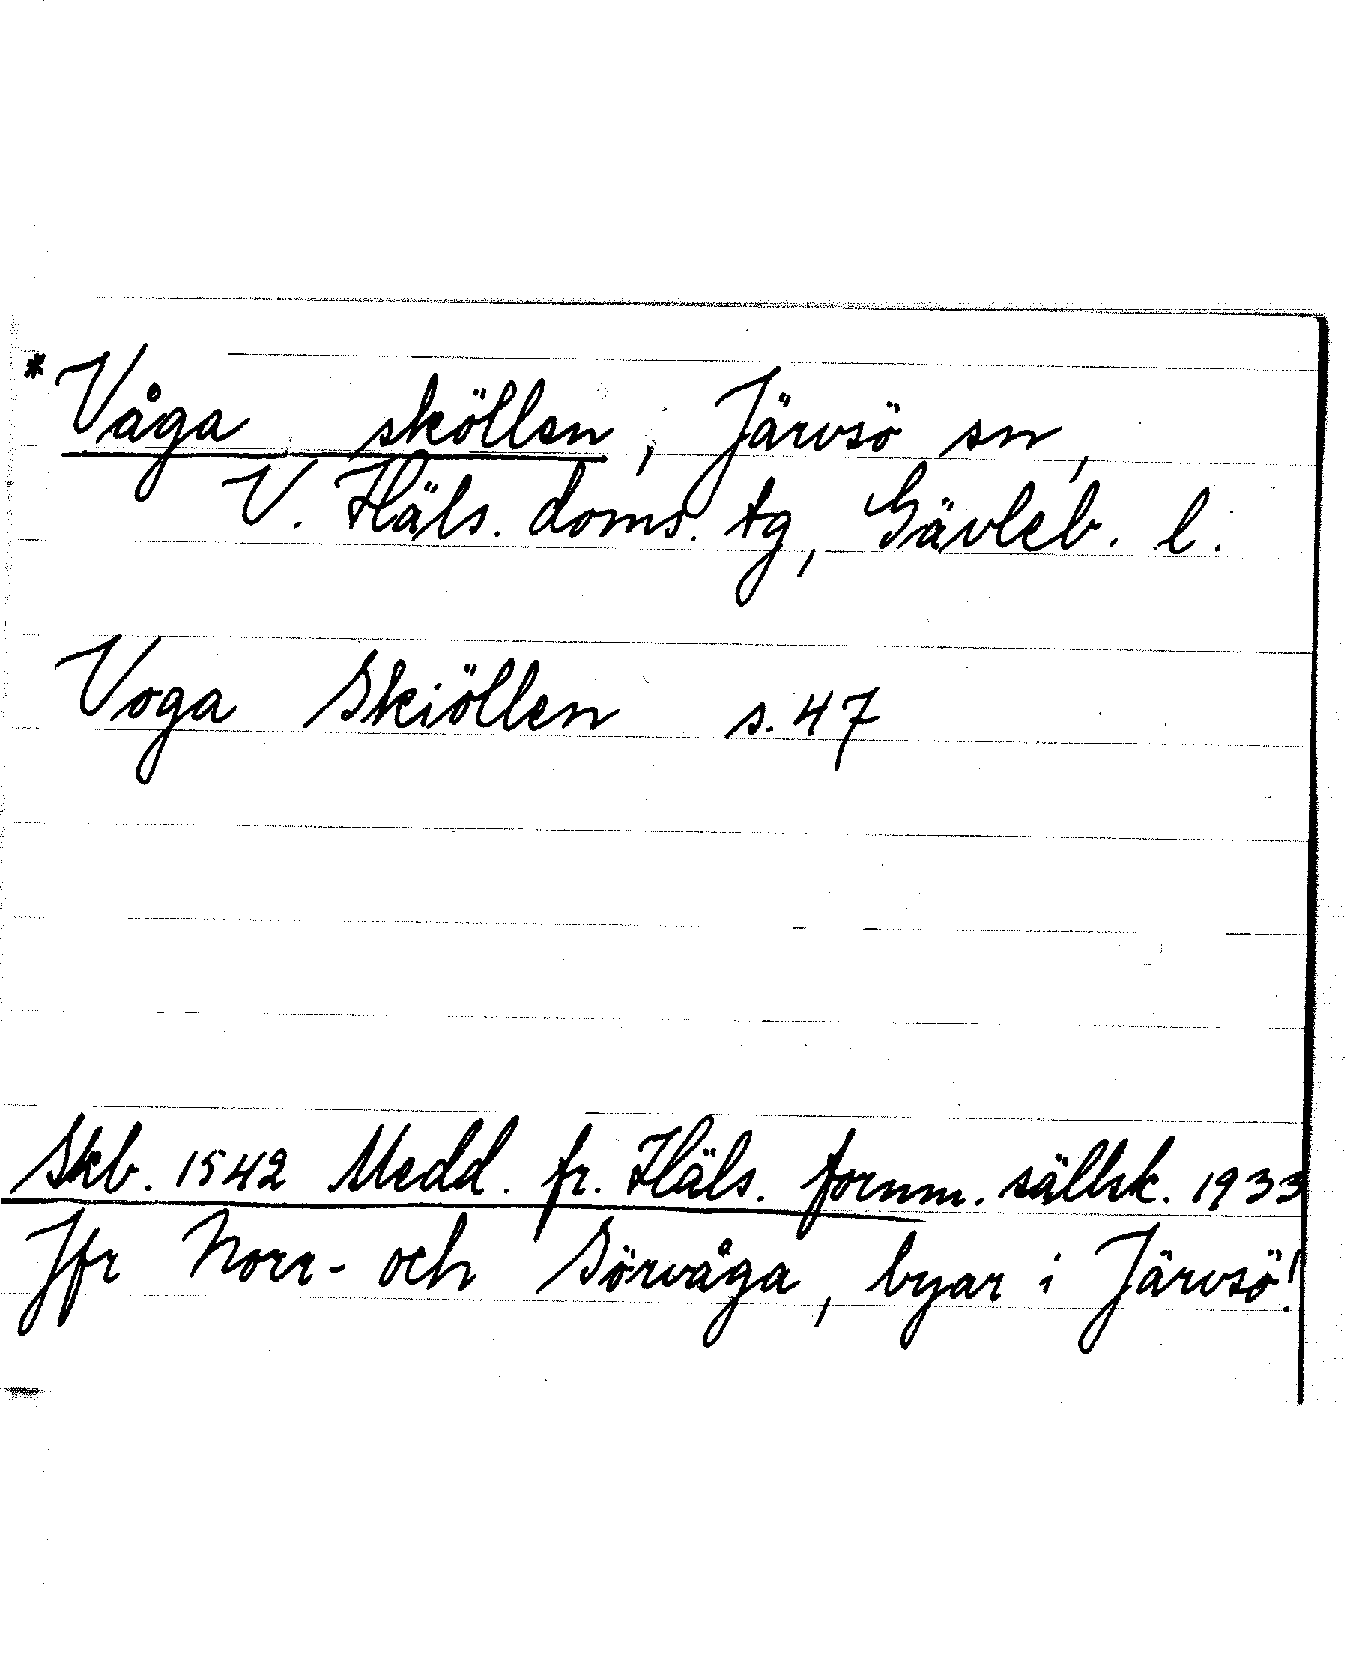 *Våga sköllen, Järvsö sn,
V. Häls. doms. tg, Gävleb. l.
Voga Skiöllen s. 47
Skb. 1542 Medd. fr. Häls. fornm. sällsk. 1933
Jfr Norr- och Sörvåga, byar i Järvsö!